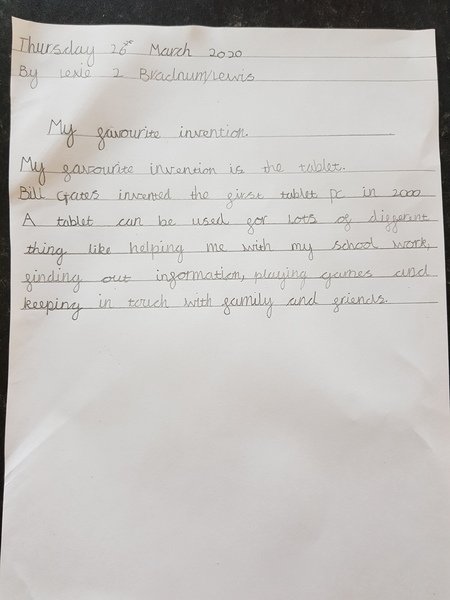 Thursday 26th March 2020
By Lexie 2 Bradnum/Lewis
My favourite invention.
My favourite invention is the tablet.
Bill Gates invented the first tablet pc in 2000
A tablet can be used for lots of different
thing like helping me with my school work,
finding out information, playing games and
keeping in touch with family and friends.